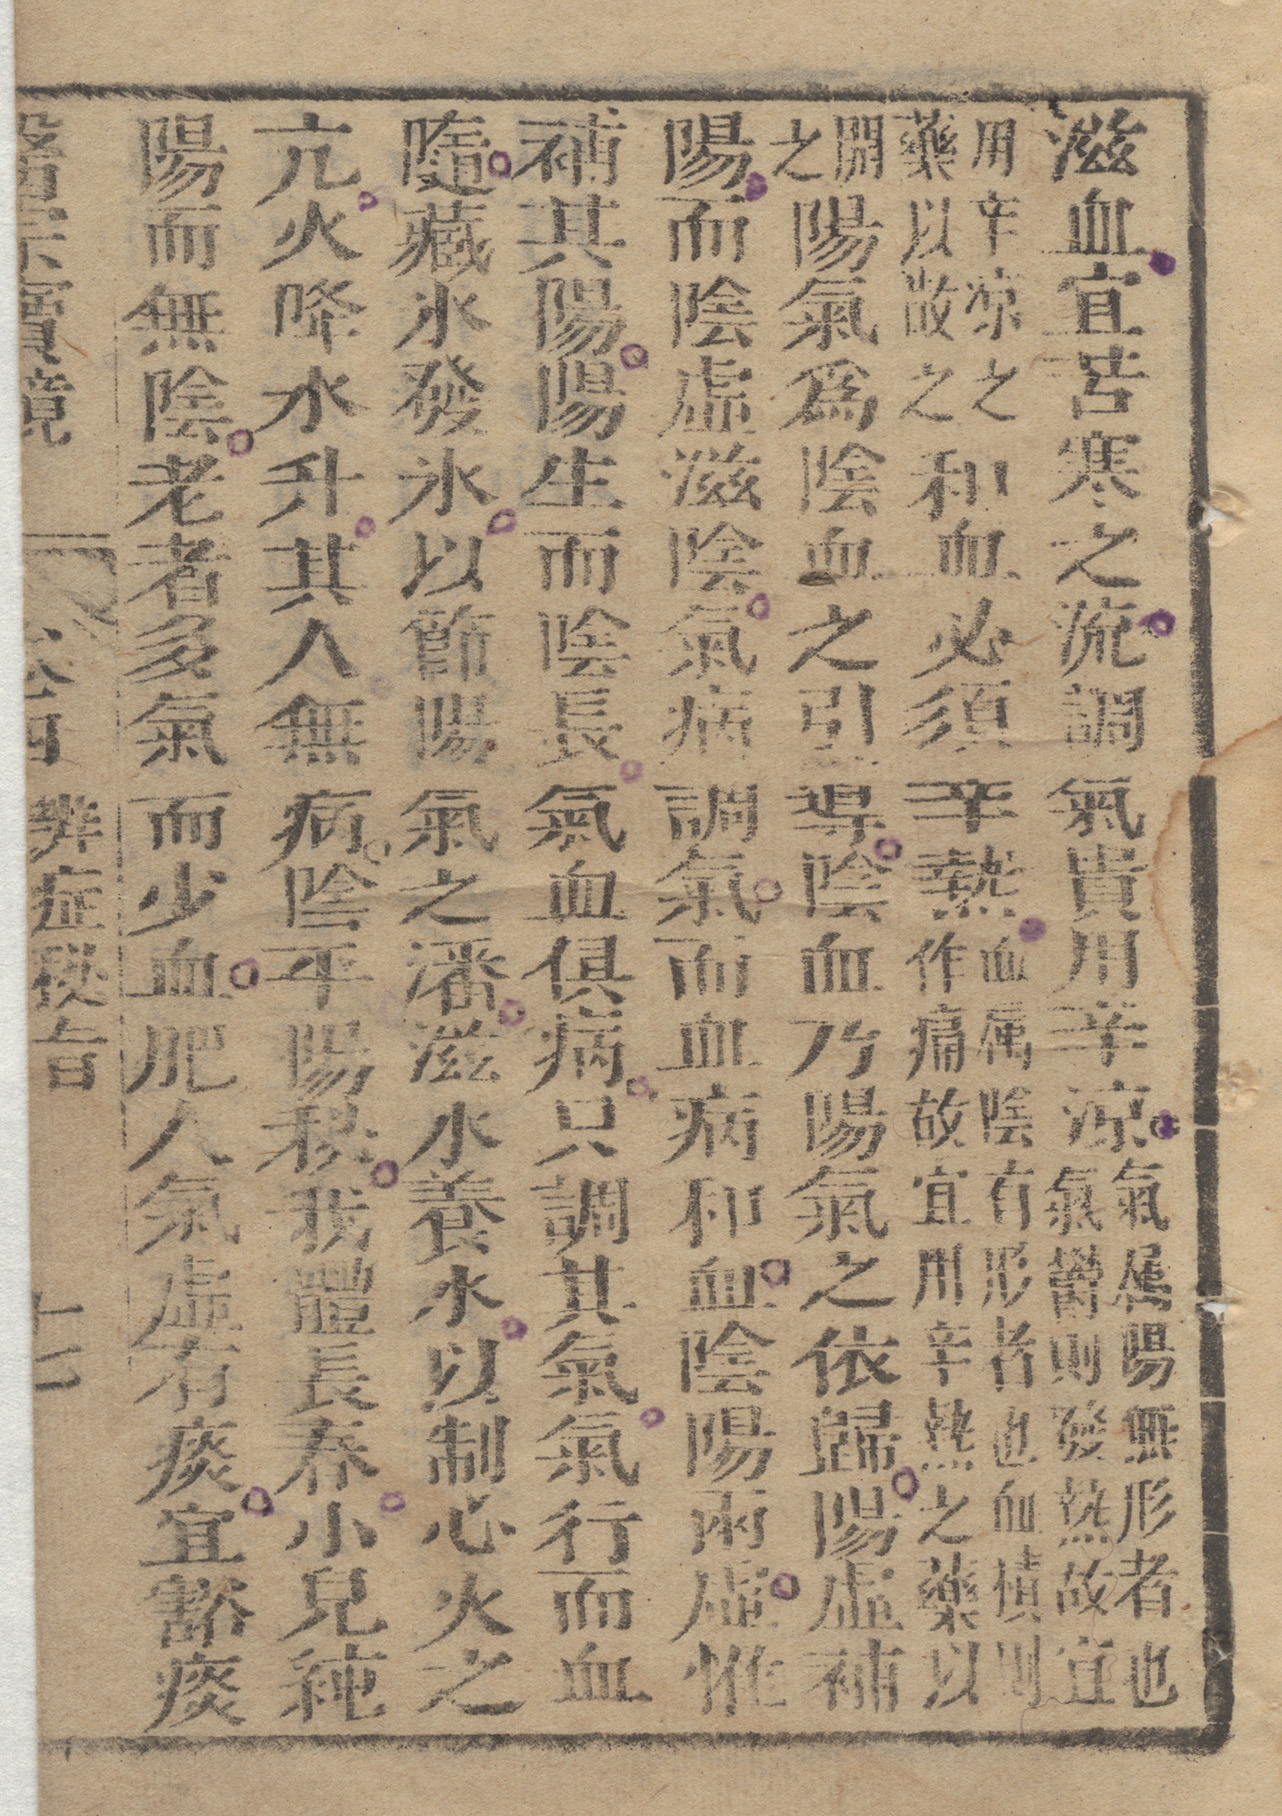 滋血宜苦寒之流調氣貴用辛涼氣属陽無形者也氣鬱則發熱故宜
用辛凉之藥以散之和血必須辛熱血属陰有形者也血慎則作痛故宜用辛熱之藥以
開之陽氣爲陰血之引導陰血乃陽氣之依歸陽虛補
陽而陰虛滋陰氣病調氣而血病和血陰陽兩虛惟
補其陽陽生而陰長氣血俱病只調其氣氣行而血
隨藏氷發氷以節陽氣之潘滋水養水以制心火之
亢火降水升其人無病陰平陽秘我體長春小兒純
陽而無陰老者多氣而少血肥人氣虛有痰宜豁痰
醫宗寶鏡 卷四 辨症秘旨 十二